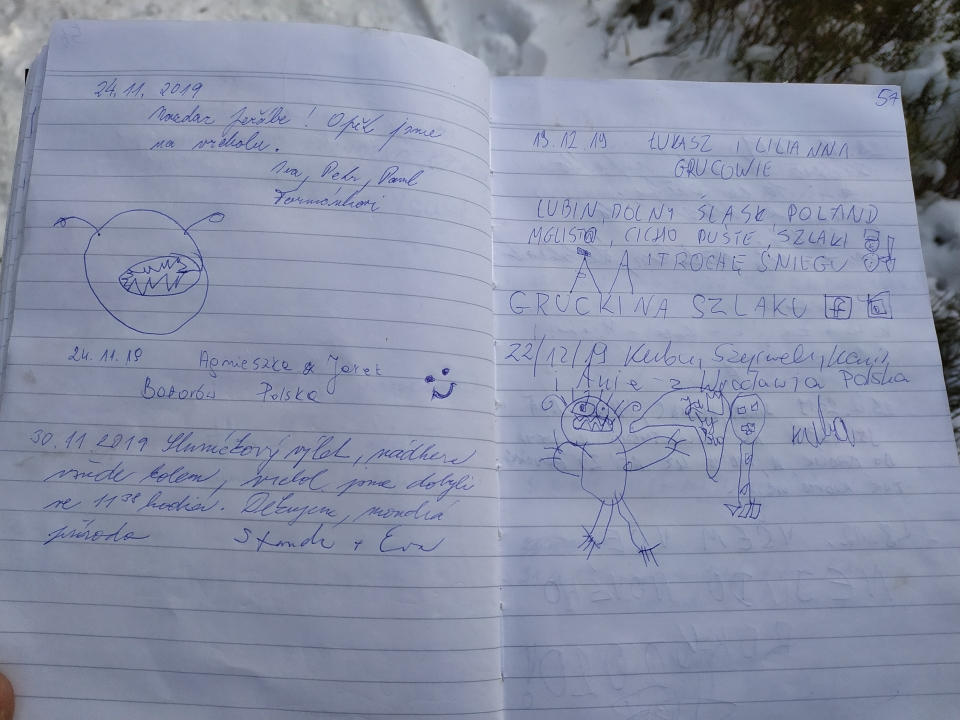 24.11.2019
Nazdar! Opět jsme
na vrcholu.
Iva, Petr, Pavel
24.11.19 Agnieszka & Jarek
Polska
30.11.2019 Sluníčkový výlet, nádhera
všude kolem, vrchol jsme dobyli
ve 11 38 hodin. Děkujem, moudrá
příroda Standa + Eva
57
13.12.19 ŁUKASZ I LILIANNA
GRUCOWIE
LUBIN, DOLNY ŚLĄSK POLAND
CICHO PUSTE, SZLAKI
I TROCHĘ ŚNIEGU
GRUCKI NA SZLAKU
22/12/19 Kuba,
i Ania z Wrocławia Polska
kuba